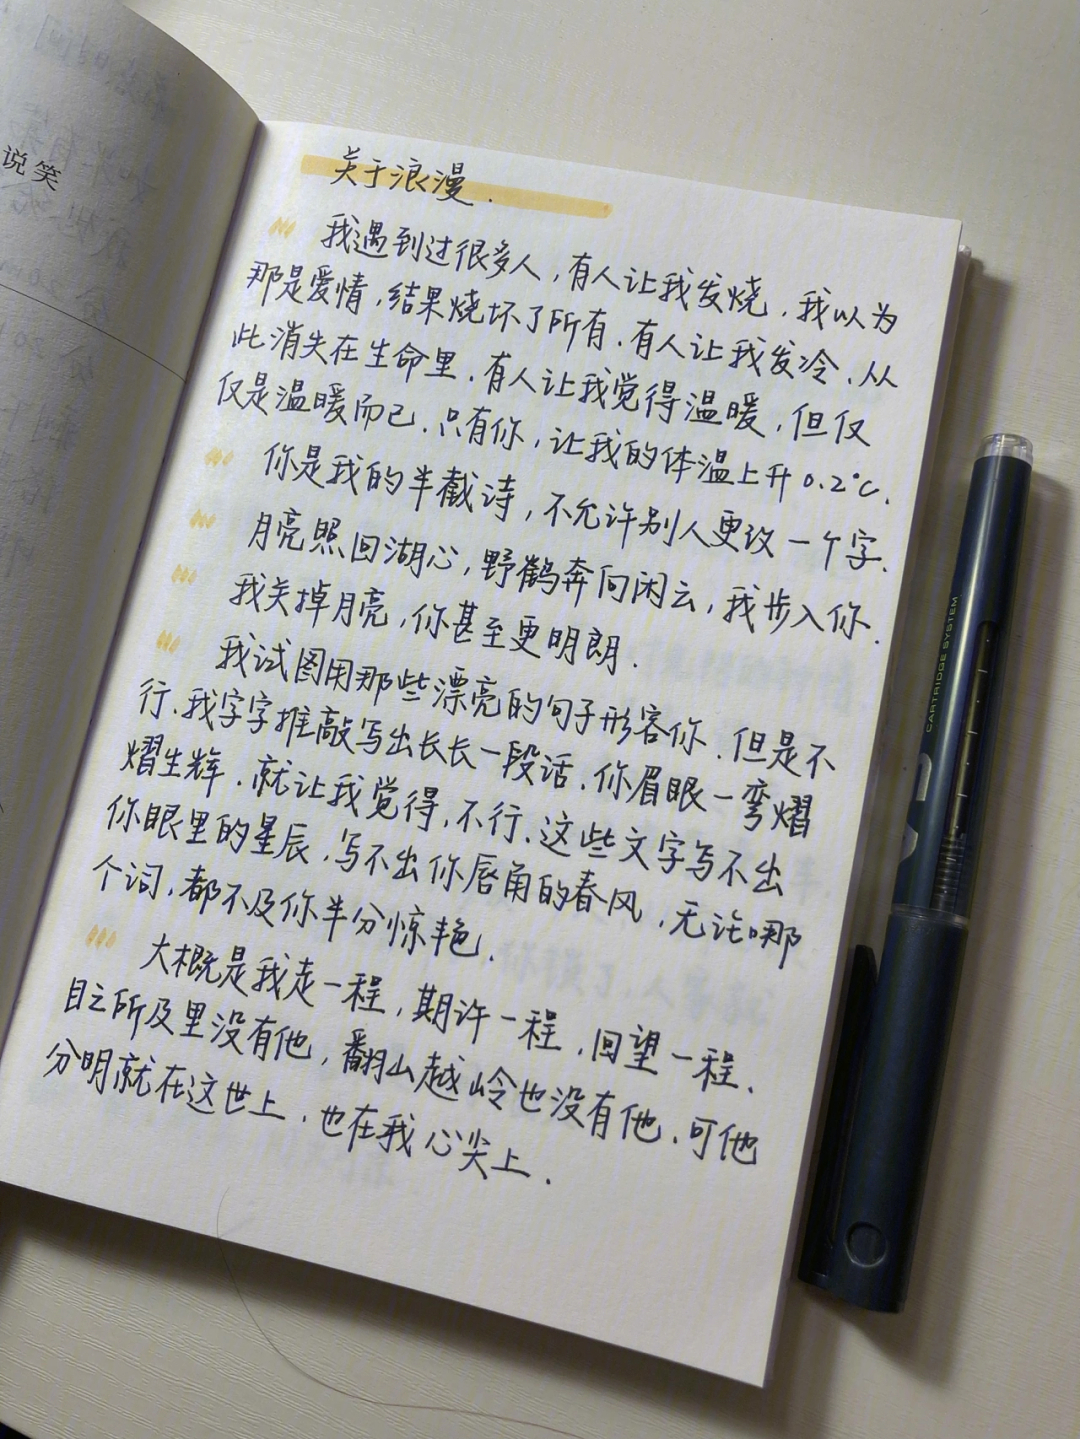 说笑
关于浪漫.
我遇到过很多人,有人让我发烧,我以为
那是爱情,结果烧坏了所有.有人让我发冷.从
此消失在生命里.有人让我觉得温暖,但仅
仅是温暖而已.只有你,让我的体温上升0.2℃.
你是我的半截诗,不允许别人更改一个字.
月亮照回湖心,野鹤奔向闲云,我步入你.
我关掉月亮,你甚至更明朗.
我试图用那些漂亮的句子形容你.但是不
行.我字字推敲写出长长一段话.你眉眼一弯熠
熠生辉.就让我觉得,不行.这些文字写不出
你眼里的星辰,写不出你唇角的春风,无论哪
个词.都不及你半分惊艳.
大概是我走一程,期许一程,回望一程.
目之所及里没有他,翻山越岭也没有他.可他
分明就在这世上.也在我心尖上.
CARTRIDGE SYSTEM